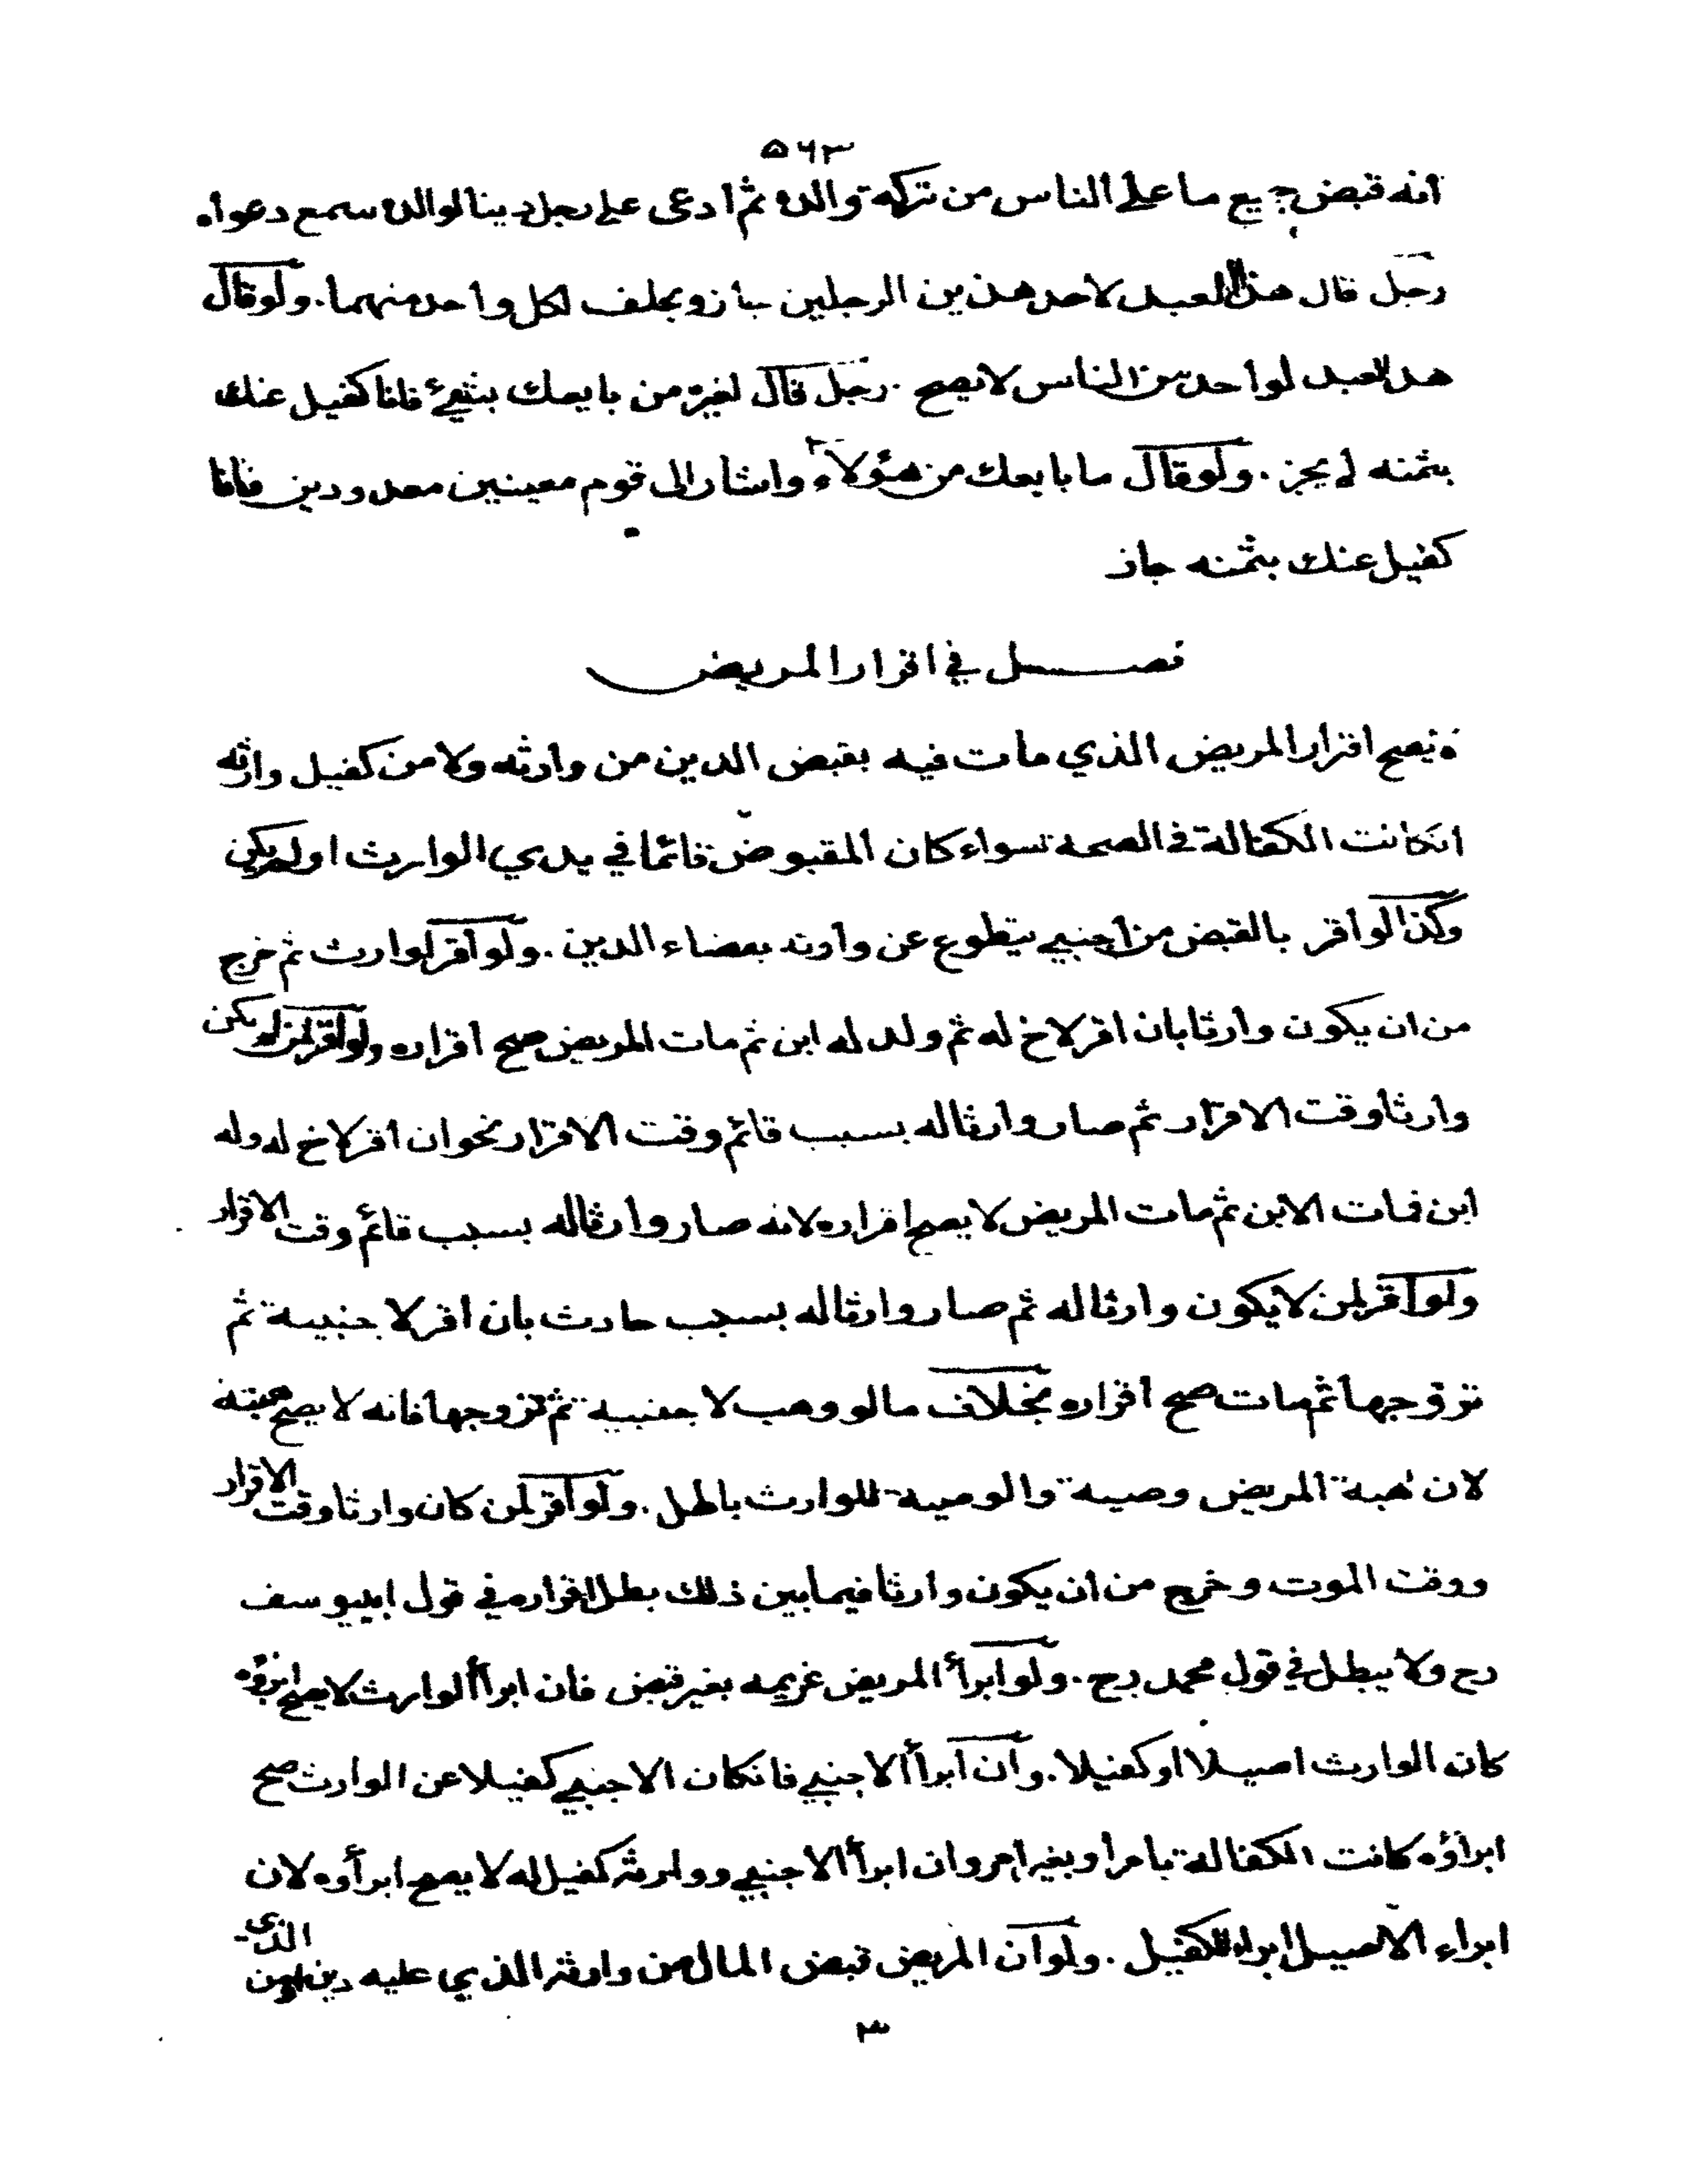 ۵۶۳
انه قبض جميع ما على الناس من تركة والده ثم ادعى على رجل دينا لوالده سمع دعواه
رجل قال هذا العبد لاحد هذين الرجلين جاز ويحلف لكل واحد منهما . ولو قال
هذا العبد لواحد من الناس لا يصح . رجل قال لغيره من بايعك بشيء فانا كفيل عنك
بثمنه لم يجز . ولو قال ما بايعك من هؤلاء واشار الى قوم معينين معدودين فانا
كفيل عنك بثمنه جاز
فصل في اقرار المريض
لا يصح اقرار المريض الذي مات فيه بقبض الدين من وارثه ولا من كفيل وارثه
انكانت الكفالة في الصحة سواء كان المقبوض قائما في يدي الوارث او لم يكن
وكذا لو اقر بالقبض من اجنبي تيطوع عن وارثه بقضاء الدين . ولو اقر لوارث ثم خرج
من ان يكون وارثا بان اقر لاخ له ثم ولد له ابن ثم مات المريض صح اقراره ولو اقر لمن لم يكن
وارثا وقت الاقرار ثم صار وارثا له بسبب قائم وقت الاقرار نحو ان اقر لاخ له وله
ابن فمات الابن ثم مات المريض لا يصح اقراره لانه صار وارثا له بسبب قائم وقت الاقرار
ولو اقر لمن لا يكون وارثا له ثم صار وارثا له بسبب حادث بان اقر لاجنبية ثم
تزوجها ثم مات صح اقراره بخلاف ما لو وهب لاجنبية ثم تزوجها فانه لا يصح هبته
لان هبة المريض وصية والوصية للوارث باطل . ولو اقر لمن كان وارثا وقت الاقرار
ووقت الموت وخرج من ان يكون وارثا فيما بين ذلك بطل اقراره في قول ابي يوسف
رح ولا يبطل في قول محمد رح . ولو ابرأ المريض غريمه بغير قبض فان ابرأ الوارث لا يصح ابراؤه
كان الوارث اصيلا او كفيلا . وان ابرأ الاجنبي فانكان الاجنبي كفيلا عن الوارث صح
ابراؤه كانت الكفالة بامر او بغير امر وان ابرأ الاجنبي ووارثه كفيل له لا يصح ابرأوه لان
ابراء الاصيل ابراء للكفيل . ولو ان المريض قبض المال من وارثه الذي عليه دين او من الذى
٣